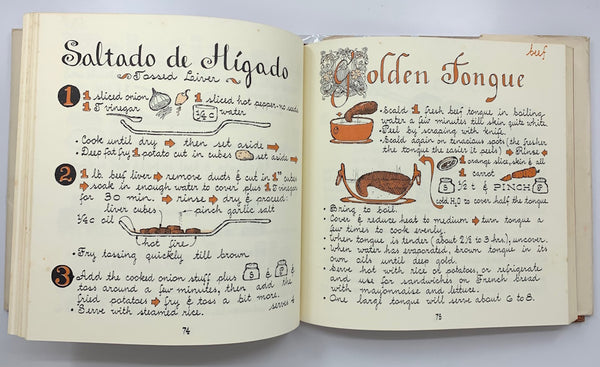 Saltado de Hígado
Tossed Liver
1 1 sliced onion 1 sliced hot pepper-no seeds
1 T vinegar ¼ c water
• Cook until dry → then set aside →
• Deep fat fry 1 potato cut in cubes set aside →
2 1 lb. beef liver → remove ducts & cut in 1" cubes
→ soak in enough water to cover plus 1 T vinegar
for 30 min. → rinse → dry & proceed:
liver cubes pinch garlic salt
¼ c oil
hot fire
• Fry tossing quickly till brown
3 • Add the cooked onion stuff plus S & P toss
around a few minutes, then add the
fried potatoes → fry & toss a bit more.
• Serve with steamed rice. serves
74
beef
Golden Tongue
• Scald 1 fresh beef tongue in boiling
water a few minutes till skin quite white
• Peel by scraping with knife
• Scald again on tenacious spots (the fresher
the tongue the easier it peels) → Rinse →
1 orange slice, skin & all
1 carrot
½ t S & PINCH P
cold H₂O to cover half the tongue
• Bring to boil.
• Cover & reduce heat to medium → turn tongue a
few times to cook evenly.
• When tongue is tender (about 2½ to 3 hrs), uncover.
• When water has evaporated, brown tongue in its
own oils until deep gold.
• Serve hot with rice or potatoes, or refrigerate
and use for sandwiches on French bread
with mayonnaise and lettuce.
• One large tongue will serve about 6 to 8.
75